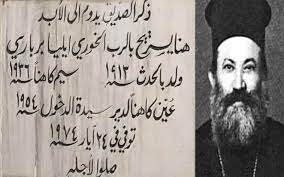 ذكر الصديق يدوم الى الأبد
هنا يستريح بالرب الخوري ايليا برباري
ولد بالحدث سنة ١٩١٣ سيم كاهناً سنة ١٩٣٦
عُيّن كاهناً لدير سيدة الدخول سنة ١٩٥٤
توفي في ٢٤ أيار سنة ١٩٧٤
صلوا لأجله